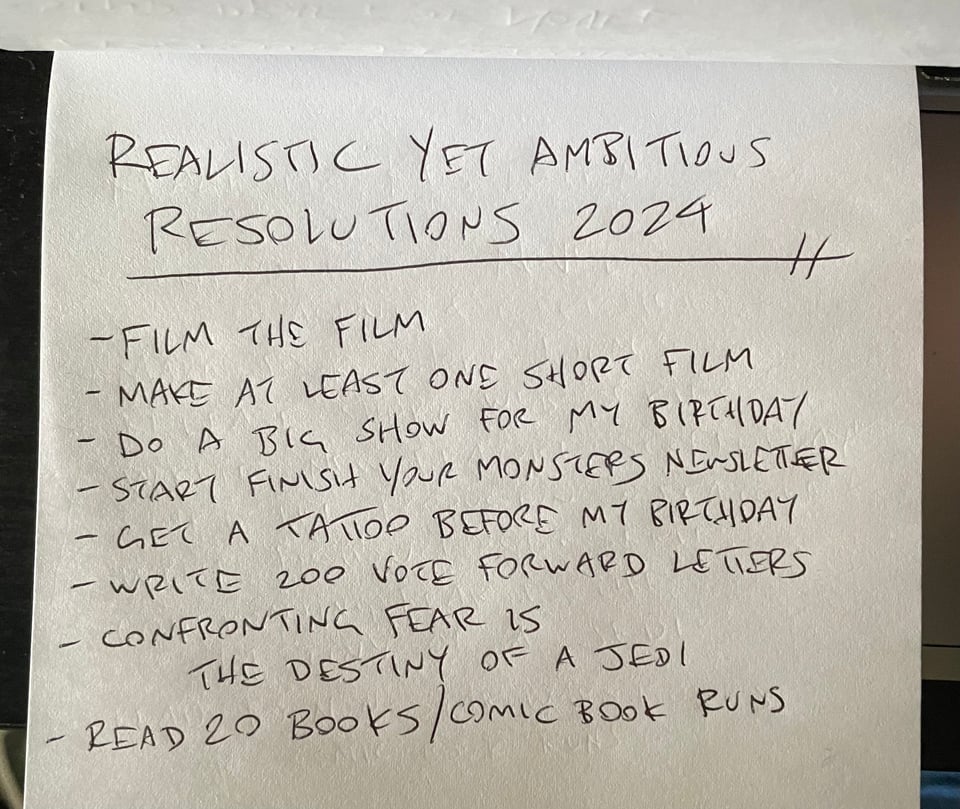 REALISTIC YET AMBITIOUS
RESOLUTIONS 2024
- FILM THE FILM
- MAKE AT LEAST ONE SHORT FILM
- DO A BIG SHOW FOR MY BIRTHDAY
- START FINISH YOUR MONSTERS NEWSLETTER
- GET A TATTOO BEFORE MY BIRTHDAY
- WRITE 200 VOTE FORWARD LETTERS
- CONFRONTING FEAR IS
THE DESTINY OF A JEDI
- READ 20 BOOKS/COMIC BOOK RUNS